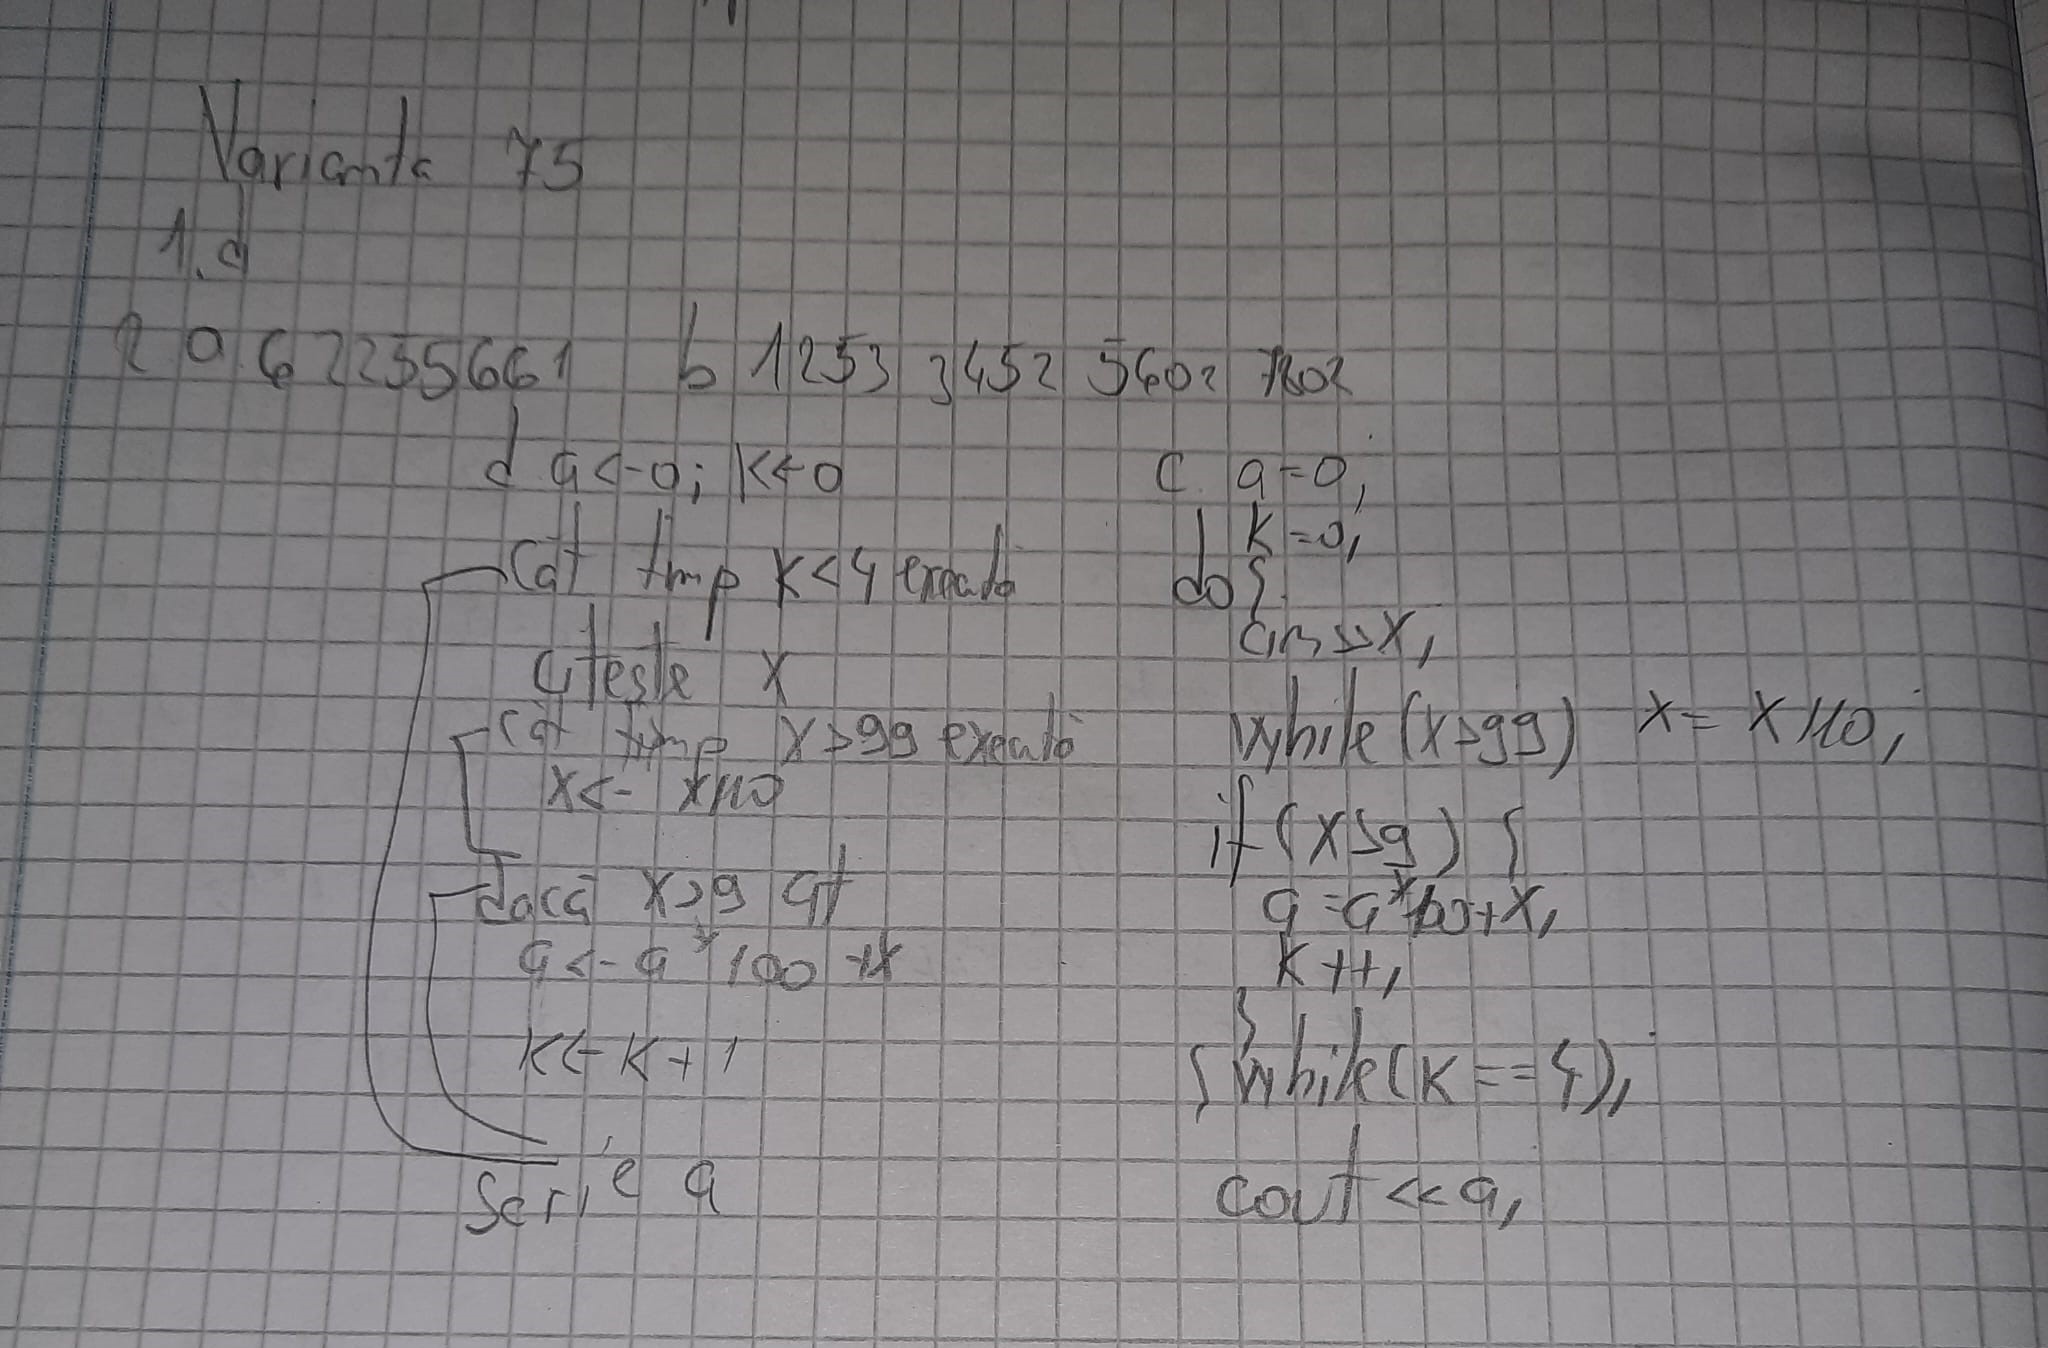 Varianta 75
1. d
2 a. 62235661 b 1253 3452 5602 7202
d a<-0; k<-0
cât timp x<4 execută
citeste x
cât timp x>99 execută
x<- x/10
dacă x>9 at
a<-a*100+x
k<-k+1
scrie a
c. a=0;
k=0;
do{
cin>>x;
while(x>99) x= x/10;
if(x>9) {
a=a*100+x;
k++;
}
}while(k==4);
cout<<a;